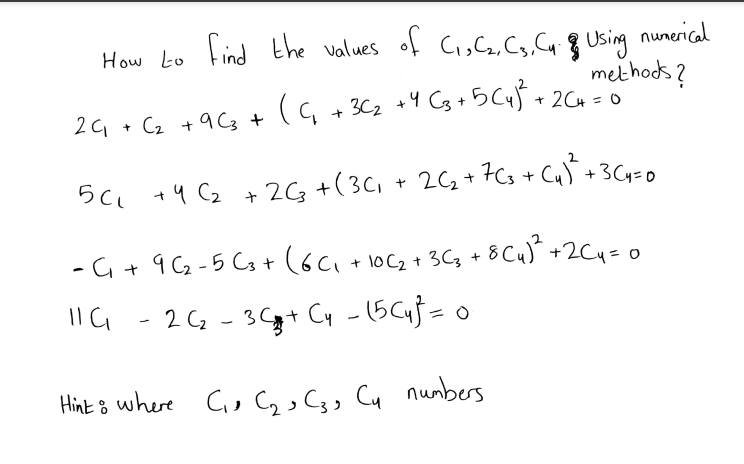 How to find the values of C₁, C₂, C₃, C₄. Using numerical
methods?
2C₁ + C₂ + 9C₃ + (C₁ + 3C₂ + 4C₃ + 5C₄)² + 2C₄ = 0
5C₁ + 4C₂ + 2C₃ + (3C₁ + 2C₂ + 7C₃ + C₄)² + 3C₄ = 0
- C₁ + 9C₂ - 5C₃ + (6C₁ + 10C₂ + 3C₃ + 8C₄)² + 2C₄ = 0
11C₁ - 2C₂ - 3C₃ + C₄ - (5C₄)² = 0
Hint: where C₁, C₂, C₃, C₄ numbers